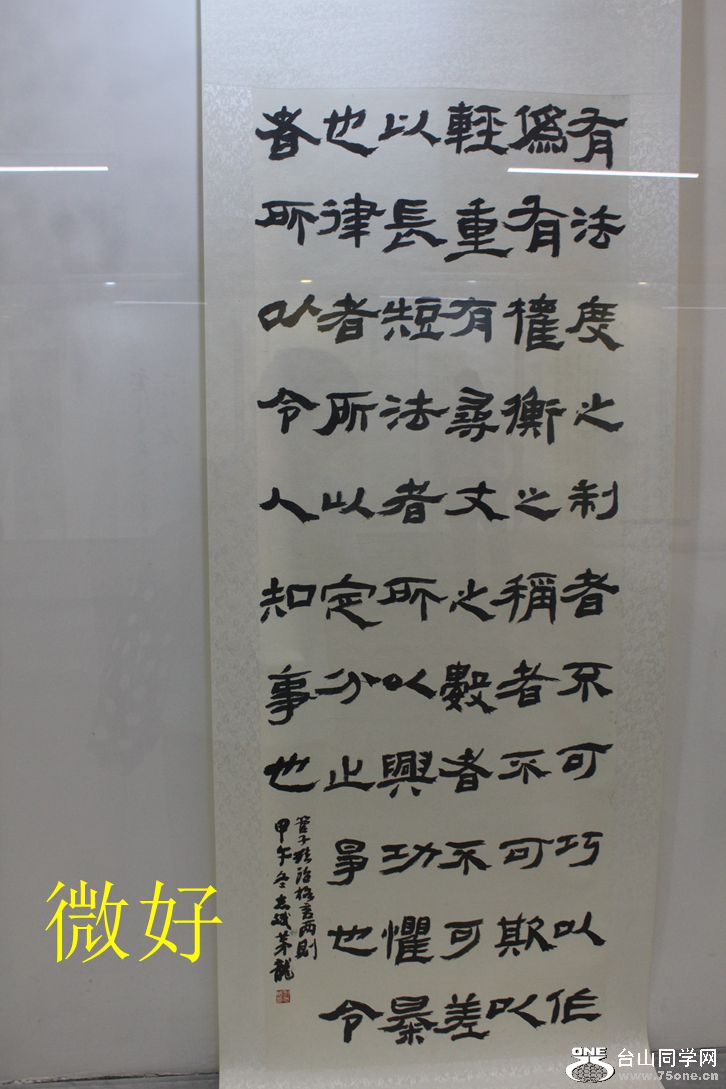 有法度之制者不可巧以作
僞有權衡之稱者不可欺以
輕重有尋丈之數者不可差
以長短法者所以興功懼暴
也律者所以定分止爭也令
者所以令人知事也
管子政治格言两則
甲午冬志斌茅龍
微好
ONE
台山同学网
www.75one.cn